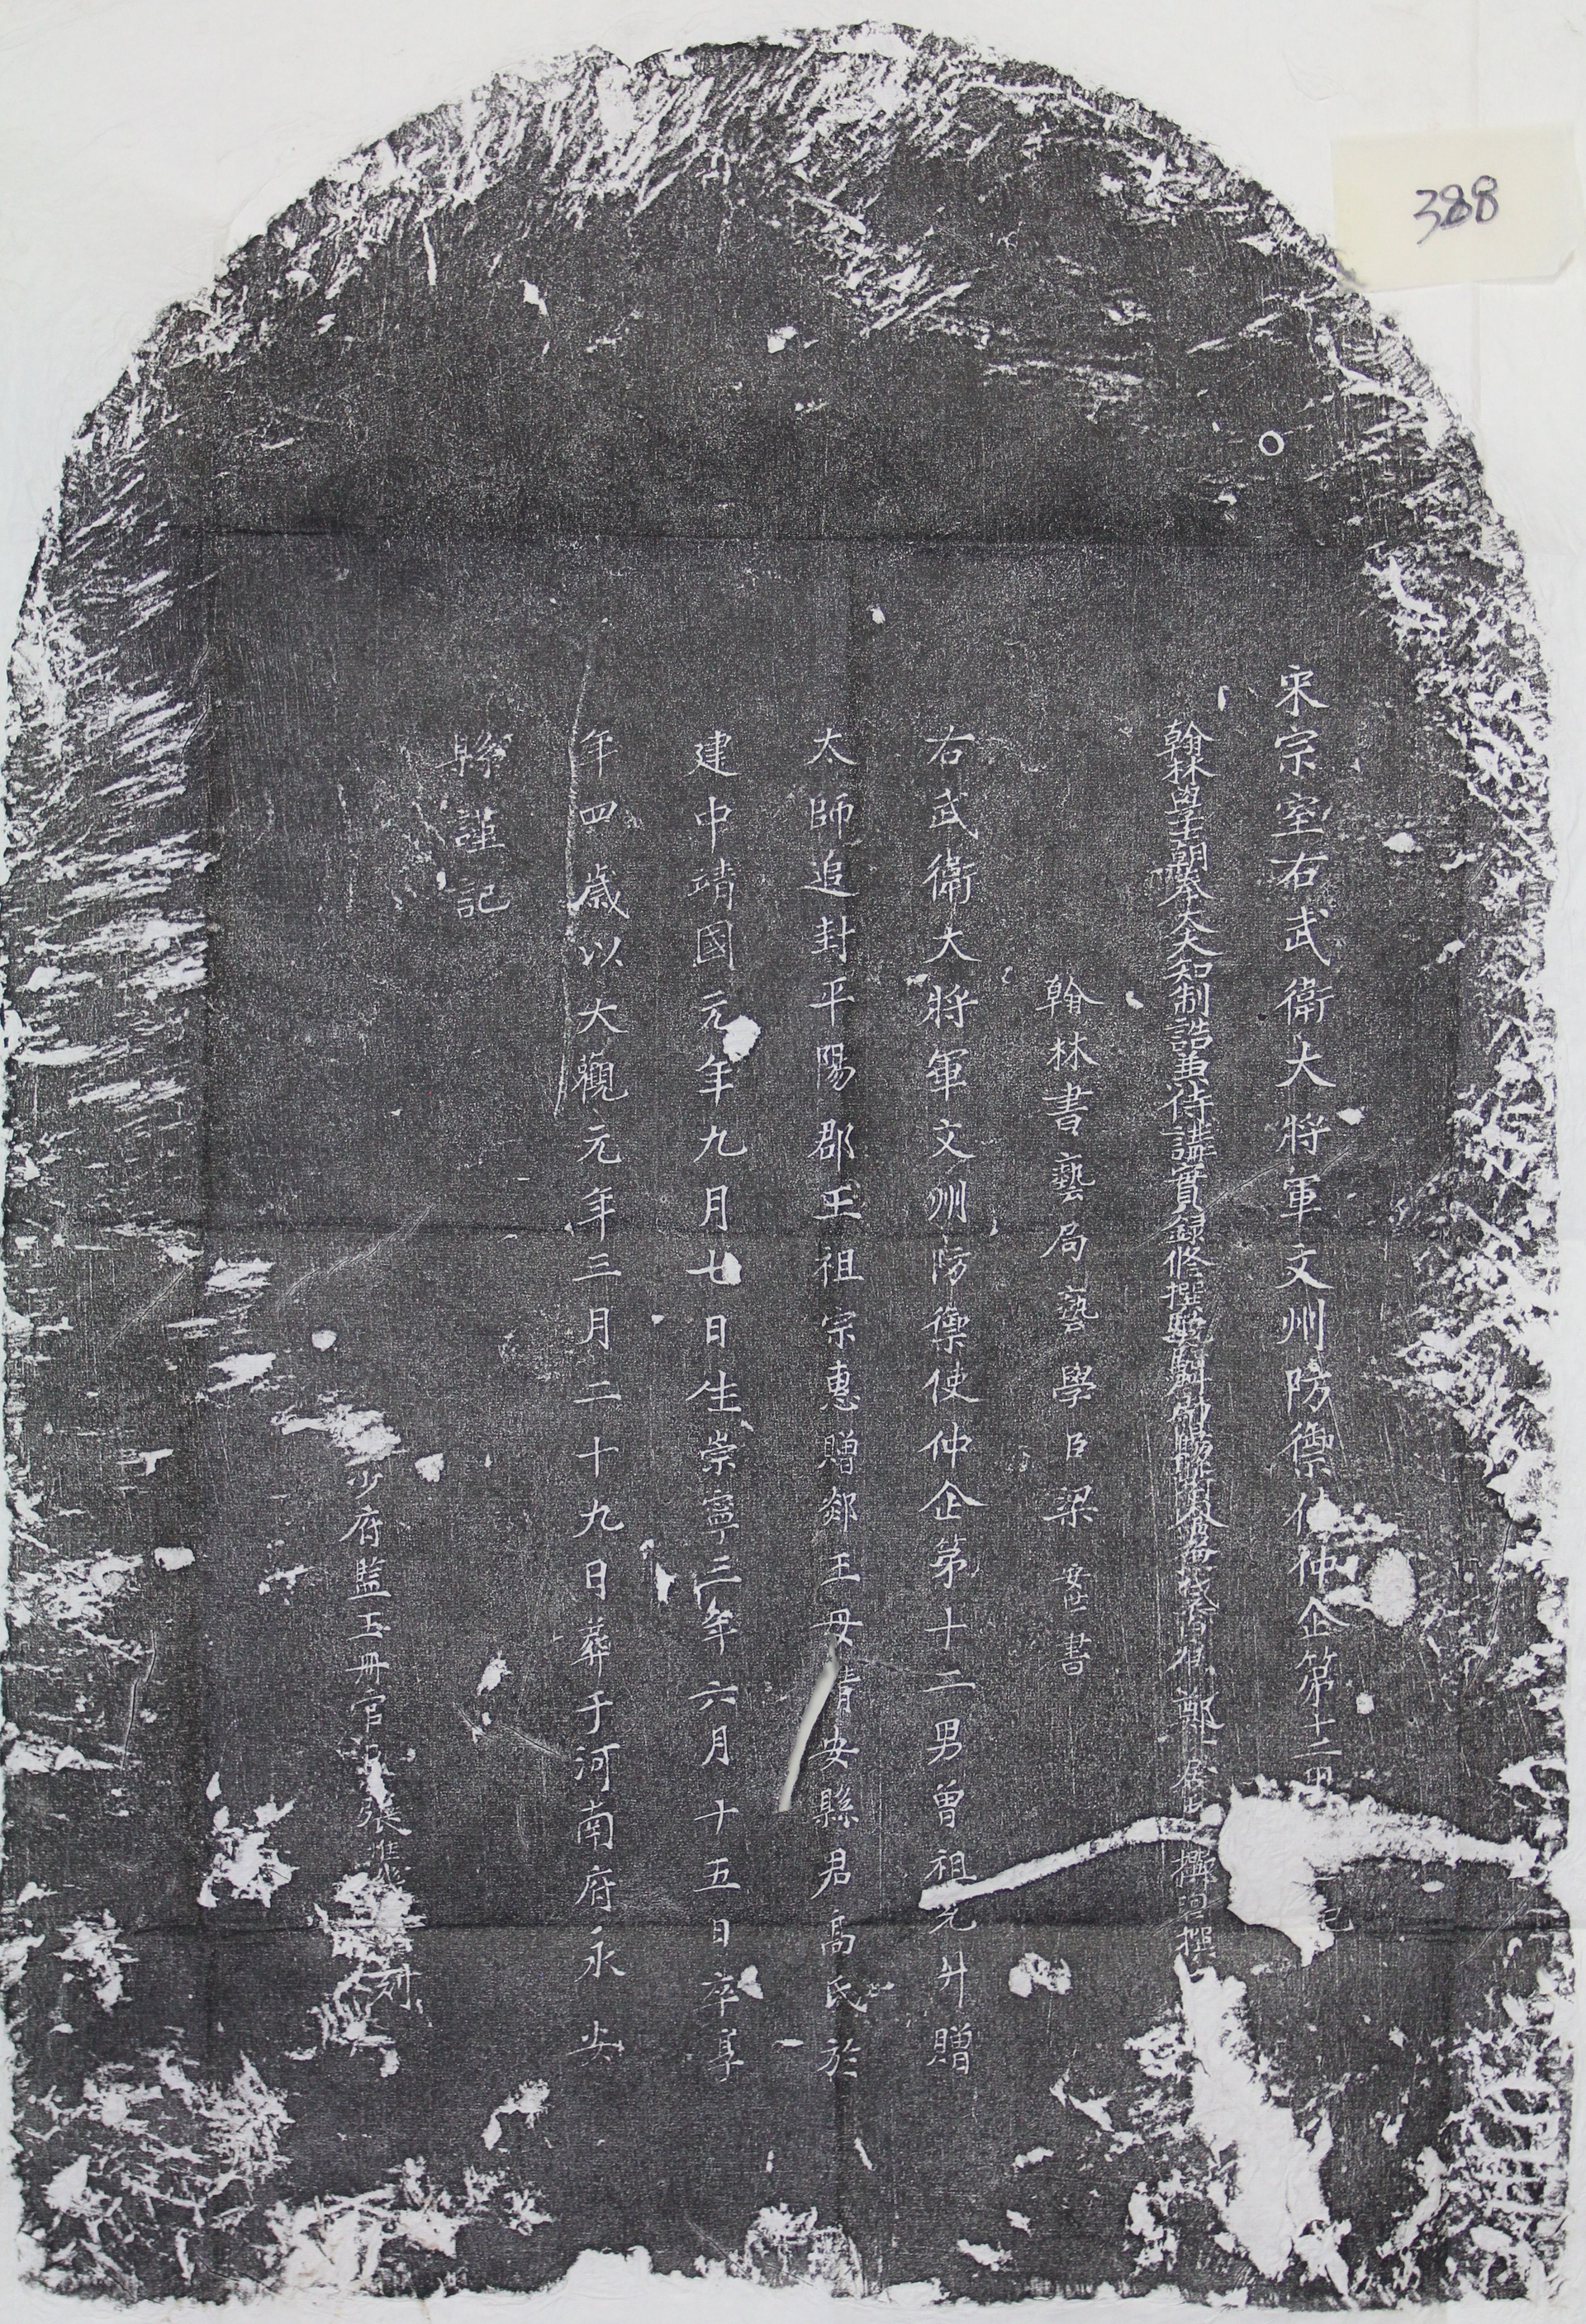 388
宋宗室右武衛大將軍文州防禦使仲企第十二男記
翰林學士朝奉大夫知制誥兼侍講實錄修撰驍騎尉賜紫金魚袋臣鄭居中撰
翰林書藝局藝學臣梁安世書
右武衛大將軍文州防禦使仲企第十二男曾祖允升贈
太師追封平陽郡王祖宗惠贈郯王母靖安縣君高氏於
建中靖國元年九月七日生崇寧三年六月十五日卒享
年四歲以大觀元年三月二十九日葬于河南府永安
縣謹記
少府監玉冊官臣張惟刊